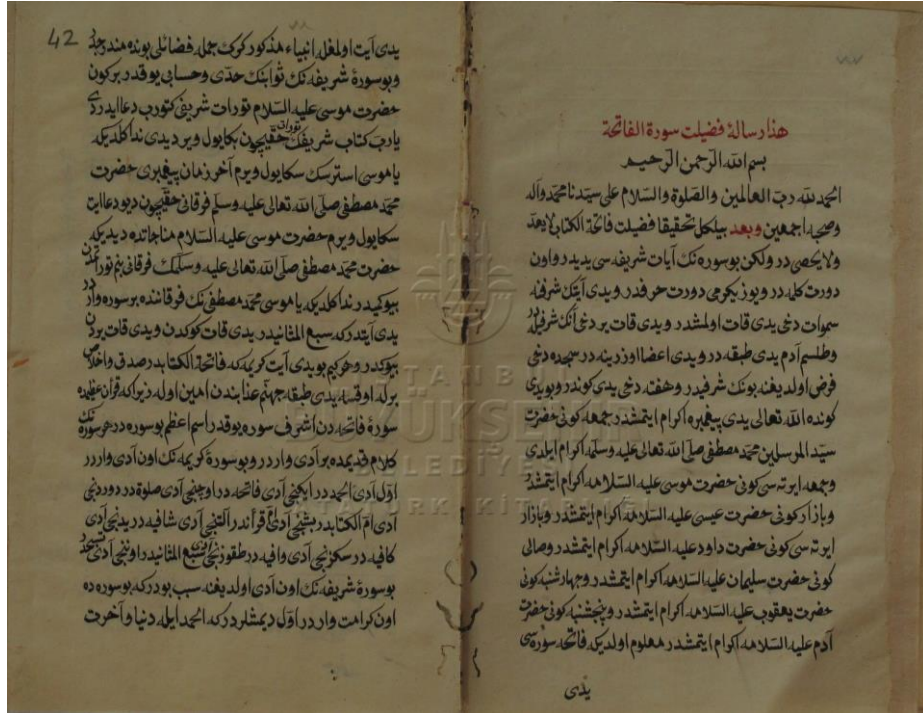 هذا رسالۀ فضیلت سورة الفاتحة
بسم الله الرحمن الرحیم
الحمد لله رب العالمین والصلوة والسلام علی سیدنا محمد وآله
وصحبه اجمعین وبعد بیلکل تحقیقا فضیلت فاتحة الکتاب لایعد
ولایحصی در ولکن بوسوره نک آیات شریفه سی یدیدر واون
دورت کلمه در ویوز یکرمی دورت حرفدر ویدی آیتک شرفنه
سموات دخی یدی قات اولمشدر ویدی قات یر دخی آنک شرفیله در
وطلسم آدم یدی طبقه در ویدی اعضا اوزرینه در سجده دخی
فرض اولدیغنه بونک شرفیدر وهفته دخی یدی کوندر وبویدی
کونده الله تعالی یدی پیغمبره اکرام ایتمشدر جمعه کونی حضرت
سید المرسلین محمد مصطفی صلی الله تعالی علیه وسلمه اکرام ایلدی
وجمعه ایرته سی کونی حضرت موسی علیه السلامه اکرام ایتمشدر
وبازار کونی حضرت عیسی علیه السلامه اکرام ایتمشدر وبازار
ایرته سی کونی حضرت داود علیه السلامه اکرام ایتمشدر وصالی
کونی حضرت سلیمان علیه السلامه اکرام ایتمشدر وچهارشنبه کونی
حضرت یعقوب علیه السلامه اکرام ایتمشدر وپنجشنبه کونی حضرت
آدم علیه السلامه اکرام ایتمشدر معلوم اولدیکه فاتحه سوره سی
یدی
42
یدی آیت اولمغله انبیاء مذکورکرک جمله فضائلی بونده مندرجدر
وبوسورۀ شریفه نک ثوابنک حدی وحسابی یوقدر برکون
حضرت موسی علیه السلام تورات شریفی کتورب دعا ایدردی
یارب کتاب شریفک تورات حقیچون بکا یول ویر دیدی ندا کلدیکه
یا موسی استرسک سکا یول ویرم آخر زمان پیغمبری حضرت
محمد مصطفی صلی الله تعالی علیه وسلم فرقانی حقیچون دیو دعا ایت
سکا یول ویرم حضرت موسی علیه السلام مناجاتده دیدیکه
حضرت محمد مصطفی صلی الله تعالی علیه وسلمک فرقانی بنم توراتمدن
بیوکمیدر ندا کلدیکه یا موسی محمد مصطفی نک فرقاننده برسوره واردر
یدی آیتدر که سبع المثانیدر یدی قات کوکدن ویدی قات یردن
بیوکدر وهرکیم بو یدی آیت کریمه که فاتحة الکتابدر صدق واخلاص
برله اوقسه یدی طبقه جهنم عذابندن امین اوله زیراکه قرآن عظیمده
سورۀ فاتحه دن اشرف سوره یوقدر اسم اعظم بوسوره در هر سوره نک
کلام قدیمده بر آدی واردر وبوسورۀ کریمه نک اون آدی واردر
اول آدی الحمددر ایکنجی آدی فاتحه در اوچنجی آدی صلوة در دوردنجی
آدی ام الکتابدر بشنجی آدی ام قرآندر آلتنجی آدی شافیه در یدنجی آدی
کافیه در سکزنجی آدی وافیه در طقوزنجی آدی سبع المثانیدر اوننجی آدی
بوسورۀ شریفه نک اون آدی اولدیغنه سبب بودرکه بوسوره ده
اون کرامت واردر اول دیمشلردرکه الحمد ایله دنیا وآخرت